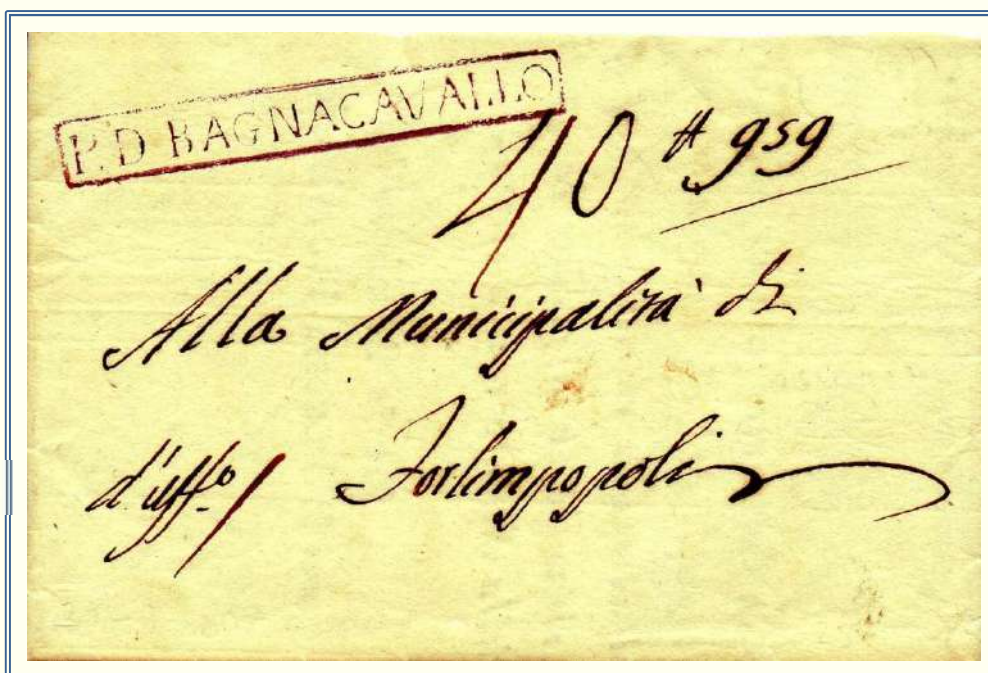 P. D BAGNACAVALLO
40 # 959
Alla Municipalità di
d'uff.o Forlimpopoli